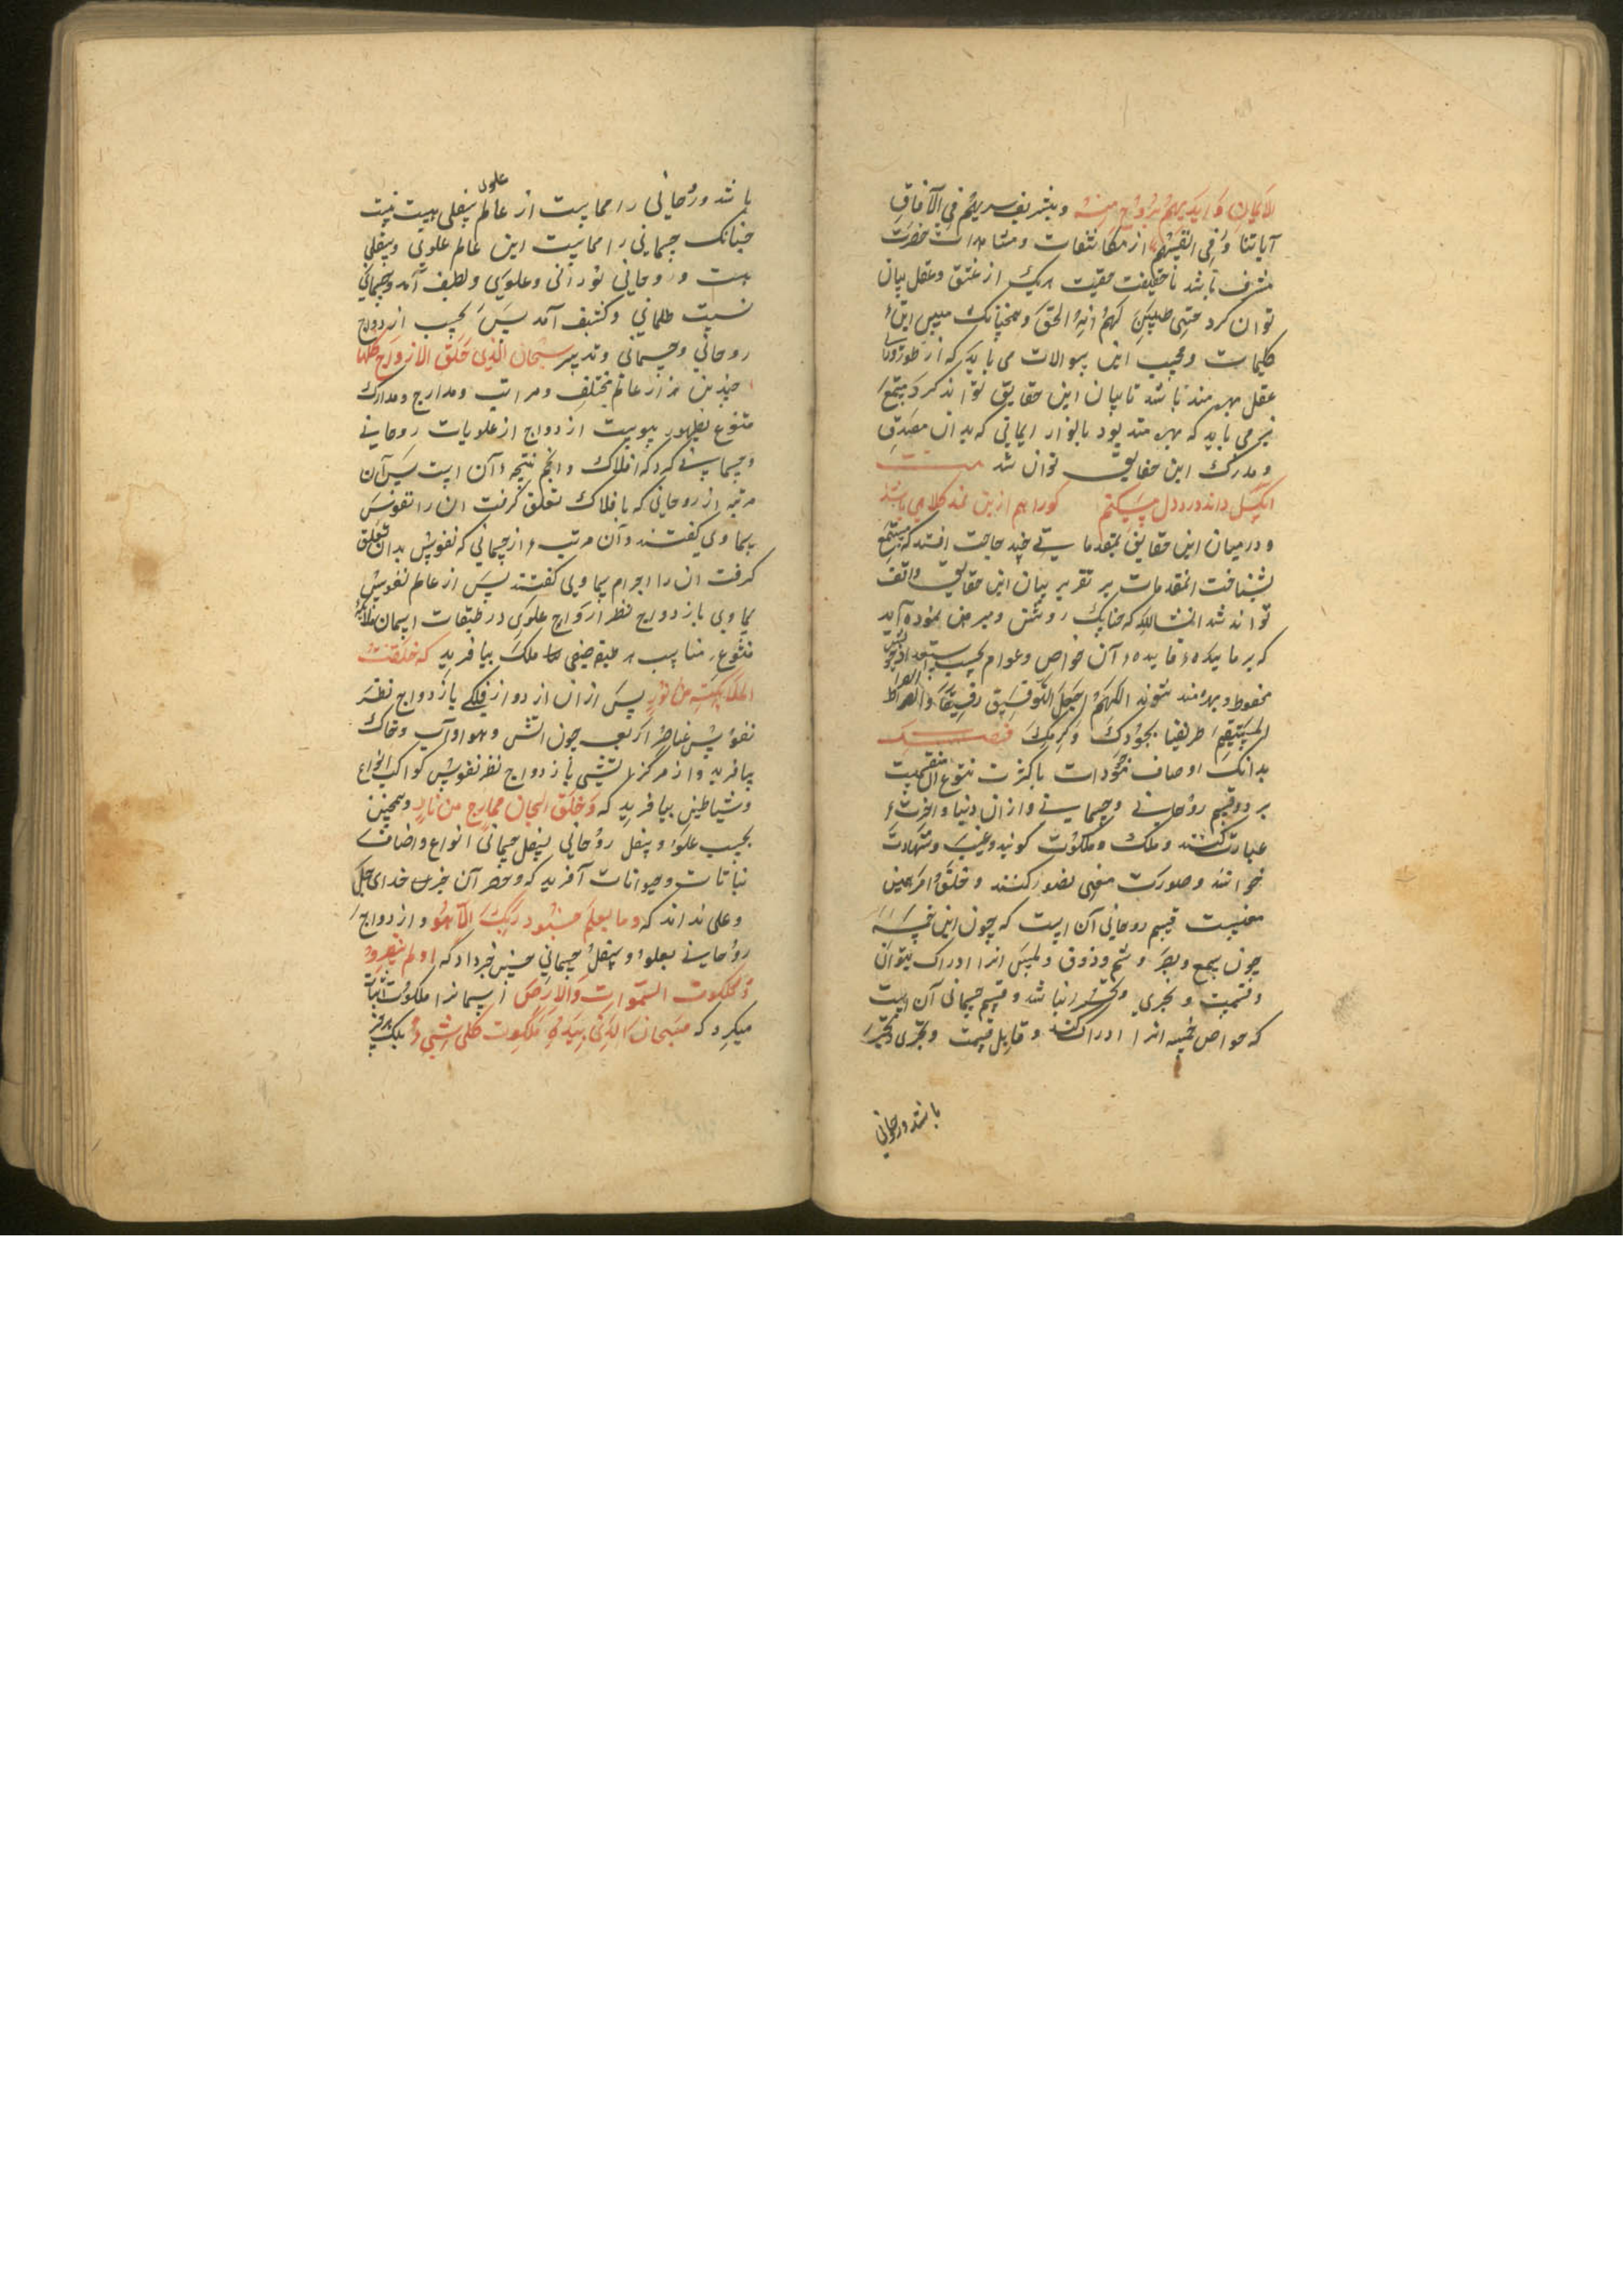 الایمان و ایدیهم بروح منه و بتشریف سریهم فی الآفاق
آیاتنا و فی انفسهم از مکاشفات و مشاهدات حضرت
مشرف باشد تا حقیقت هر یک از عشق و عقل بیان
توان کرد حتی یتبین لهم انه الحق و همچنانک مبین این
کلمات و مجیب این سوالات می باید که از طور ورای
عقل بهره مند باشد تا بیان این حقایق تواند کرد مستمع
نیز می باید که بهره مند بود بانوار ایمانی که بدان مصدق
و مدرک این حقایق توان شد بیت
آنکس داند درد دل مسکینم کو را هم ازین نمد کلاهی باشد
و در میان این حقایق بمقدماتی چند حاجت افتد که مستمع
بشناخت آن مقدمات بر تقریر بیان این حقایق واقف
تواند شد انشاالله که چنانک روشن و مبرهن نموده آید
که بر مایده فایده آن خواص و عوام بحسب استعداد خویش
محظوظ و بهره مند شوند اللهم اجعل التوفیق رفیقنا و الصراط
المستقیم طریقنا بجودک و کرمک فصل
بدانک اوصاف موجودات با کثرت تنوع آن منقسمست
بر دو قسم روحانی و جسمانی و از آن دنیا و آخرت
عبارت کنند و ملک و ملکوت گویند و غیب و شهادت
خوانند و صورت معنی تصور کنند و خلق و امر همین
معنیست قسم روحانی آن است که حواس خمسه
چون سمع و بصر و شم و ذوق و لمس آنرا ادراک نتواند
و قسمت و تجزی و تحیز نباشد و قسم جسمانی آن است
که حواص خمسه آنرا ادراک کند و قابل قسمت و تجزی و تحیز
باشد و روحانی
باشد و روحانی را مماست از عالم علوی سفلی هست نیست
چنانک جسمانی را مماست این عالم علوی و سفلی
هست و روحانی نورانی و علوی و لطیف آمد و جسمانی
نسبت ظلمانی و کثیف آمد پس بحسب ازدواج
روحانی و جسمانی و تدبیر سبحان الذی خلق الازواج کلها
چندین هزار عالم مختلف و مراتب و مدارج و مدارک
متنوع بظهور پیوست ازدواج از علویات روحانی
و جسمانی کرد که افلاک و انجم نتیجه آن است پس آن
مرتبه از روحانی که بافلاک تعلق گرفت آن را نفوس
سماوی گفتند و آن مرتبه از جسمانی که نفوس بدان تعلق
گرفت آن را اجرام سماوی گفتند پس از عالم نفوس
سماوی بازدواج نظر ازواج علوی در طبقات آسمان ملائکه
متنوع مناسب هر طبقه صنفی ملک بیافرید که خلقت
الملائکة من نور پس از آن ازدواج فلکی بازدواج نظر
نفوس عناصر اربعه چون آتش و هوا و آب و خاک
بیافرید و از مرکز آتشی بازدواج نظر نفوس کواکب انواع
و شیاطین بیافرید که و خلق الجان من مارج من نار و همچنین
بحسب علو و سفل روحانی بسفل جسمانی انواع و اصناف
نباتات و حیوانات آفرید که و حصر آن جز خدای جل
و علی نداند که و ما یعلم جنود ربک الا هو و ازدواج
روحانی بعلو و سفل جسمانی چنین خبر داد که اولم ینظروا
فی ملکوت السموات و الارض آسمانرا ملکوت اثبات
میکرد که سبحان الذی بیده ملکوت کل شیء بلک هر چیز